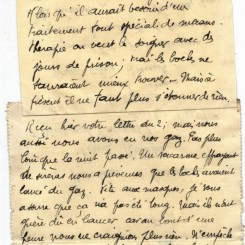 Alors qu'il aurait besoin d'un
traitement tout spécial de mécano-
thérapie on veut le soigner avec des
jours de prison; mais les boches ne
sauraient mieux trouver. Mais à
présent il ne faut plus s'étonner de rien.
Reçu hier votre lettre du 2; mais nous
aussi nous avons eu nos gaz. Pas plus
loin que la nuit passée. Un vacarme effrayant
de sirènes nous a prévenus que les boches avaient
lancé du gaz. Vite aux masques, je vous
assure que ça n'a pas été long. Mais ils n'ont
guère dû en lancer car au bout d'une
heure nous ne craignions plus rien. N'empêche